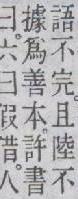 語不完。且陸不
據爲善本。許書
曰。六曰假借。人